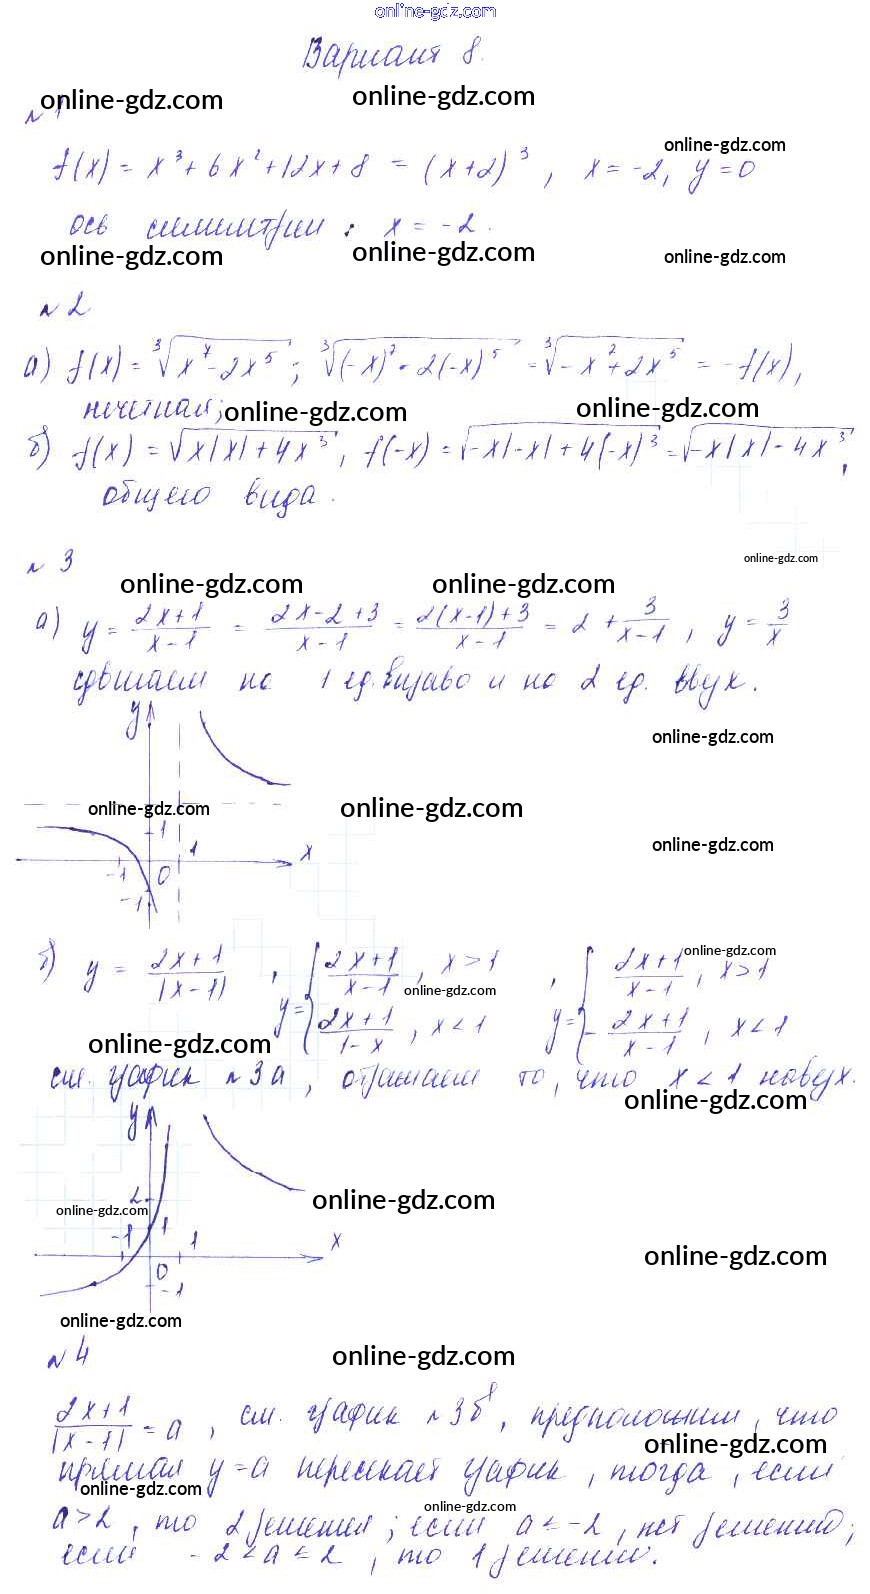 online-gdz.com
Вариант 8.
online-gdz.com online-gdz.com
№ 1
online-gdz.com
f(x) = x³ + 6x² + 12x + 8 = (x+2)³, x = -2, y = 0
ось симметрии: x = -2.
online-gdz.com online-gdz.com online-gdz.com
№ 2
а) f(x) = ∛(x⁷ - 2x⁵); ∛((-x)⁷ - 2(-x)⁵) = ∛(-x⁷ + 2x⁵) = -f(x),
нечетная; online-gdz.com online-gdz.com
б) f(x) = √(x|x| + 4x³), f(-x) = √(-x|-x| + 4(-x)³) = √(-x|x| - 4x³),
общего вида.
№ 3
online-gdz.com
online-gdz.com online-gdz.com
а) y = (2x+1)/(x-1) = (2x-2+3)/(x-1) = (2(x-1)+3)/(x-1) = 2 + 3/(x-1), y = 3/x
сдвигаем на 1 ед. вправо и на 2 ед. вверх.
y
online-gdz.com
online-gdz.com online-gdz.com
1
online-gdz.com
-1 0 1 x
-1
б) y = (2x+1)/|x-1|, y = { (2x+1)/(x-1), x > 1
(2x+1)/(1-x), x < 1
, y = { (2x+1)/(x-1), x > 1
-(2x+1)/(x-1), x < 1
online-gdz.com
online-gdz.com
online-gdz.com
см. график № 3а, отражаем то, что x < 1 наверх.
online-gdz.com
y
2
online-gdz.com online-gdz.com
-1 1 1 x
online-gdz.com
0
-1
online-gdz.com
№ 4
online-gdz.com
(2x+1)/|x-1| = a, см. график № 3б, предположим, что
online-gdz.com
прямая y = a пересекает график, тогда, если
online-gdz.com
online-gdz.com
a > 2, то 2 решения; если a ≤ -2, нет решений;
если -2 < a ≤ 2, то 1 решение.